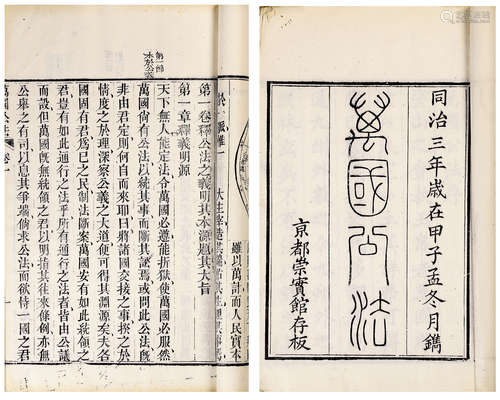 同治三年歲在甲子孟冬月鐫
萬國公法
京都崇實館存板
第一卷釋公法之義明其本源題其大旨
第一章釋義明源
天下無人能定法令萬國必遵能折獄使萬國必服然
萬國尚有公法以統其事而斷其訟焉或問此公法既
非由君定則何自而來耶曰將諸國交接之事揆之於
情度之於理深察公義之大道便可得其淵源矣夫各
國固有君爲己之民制法斷案萬國安有如此統領之
君豈有如此通行之法乎所有通行之法者皆由公議
而設但萬國既無統領之君以明指其往來條例亦無
公舉之有司以息其爭端倘求公法而欲恃一國之君
萬國公法 卷一
雖以萬計而人民實本